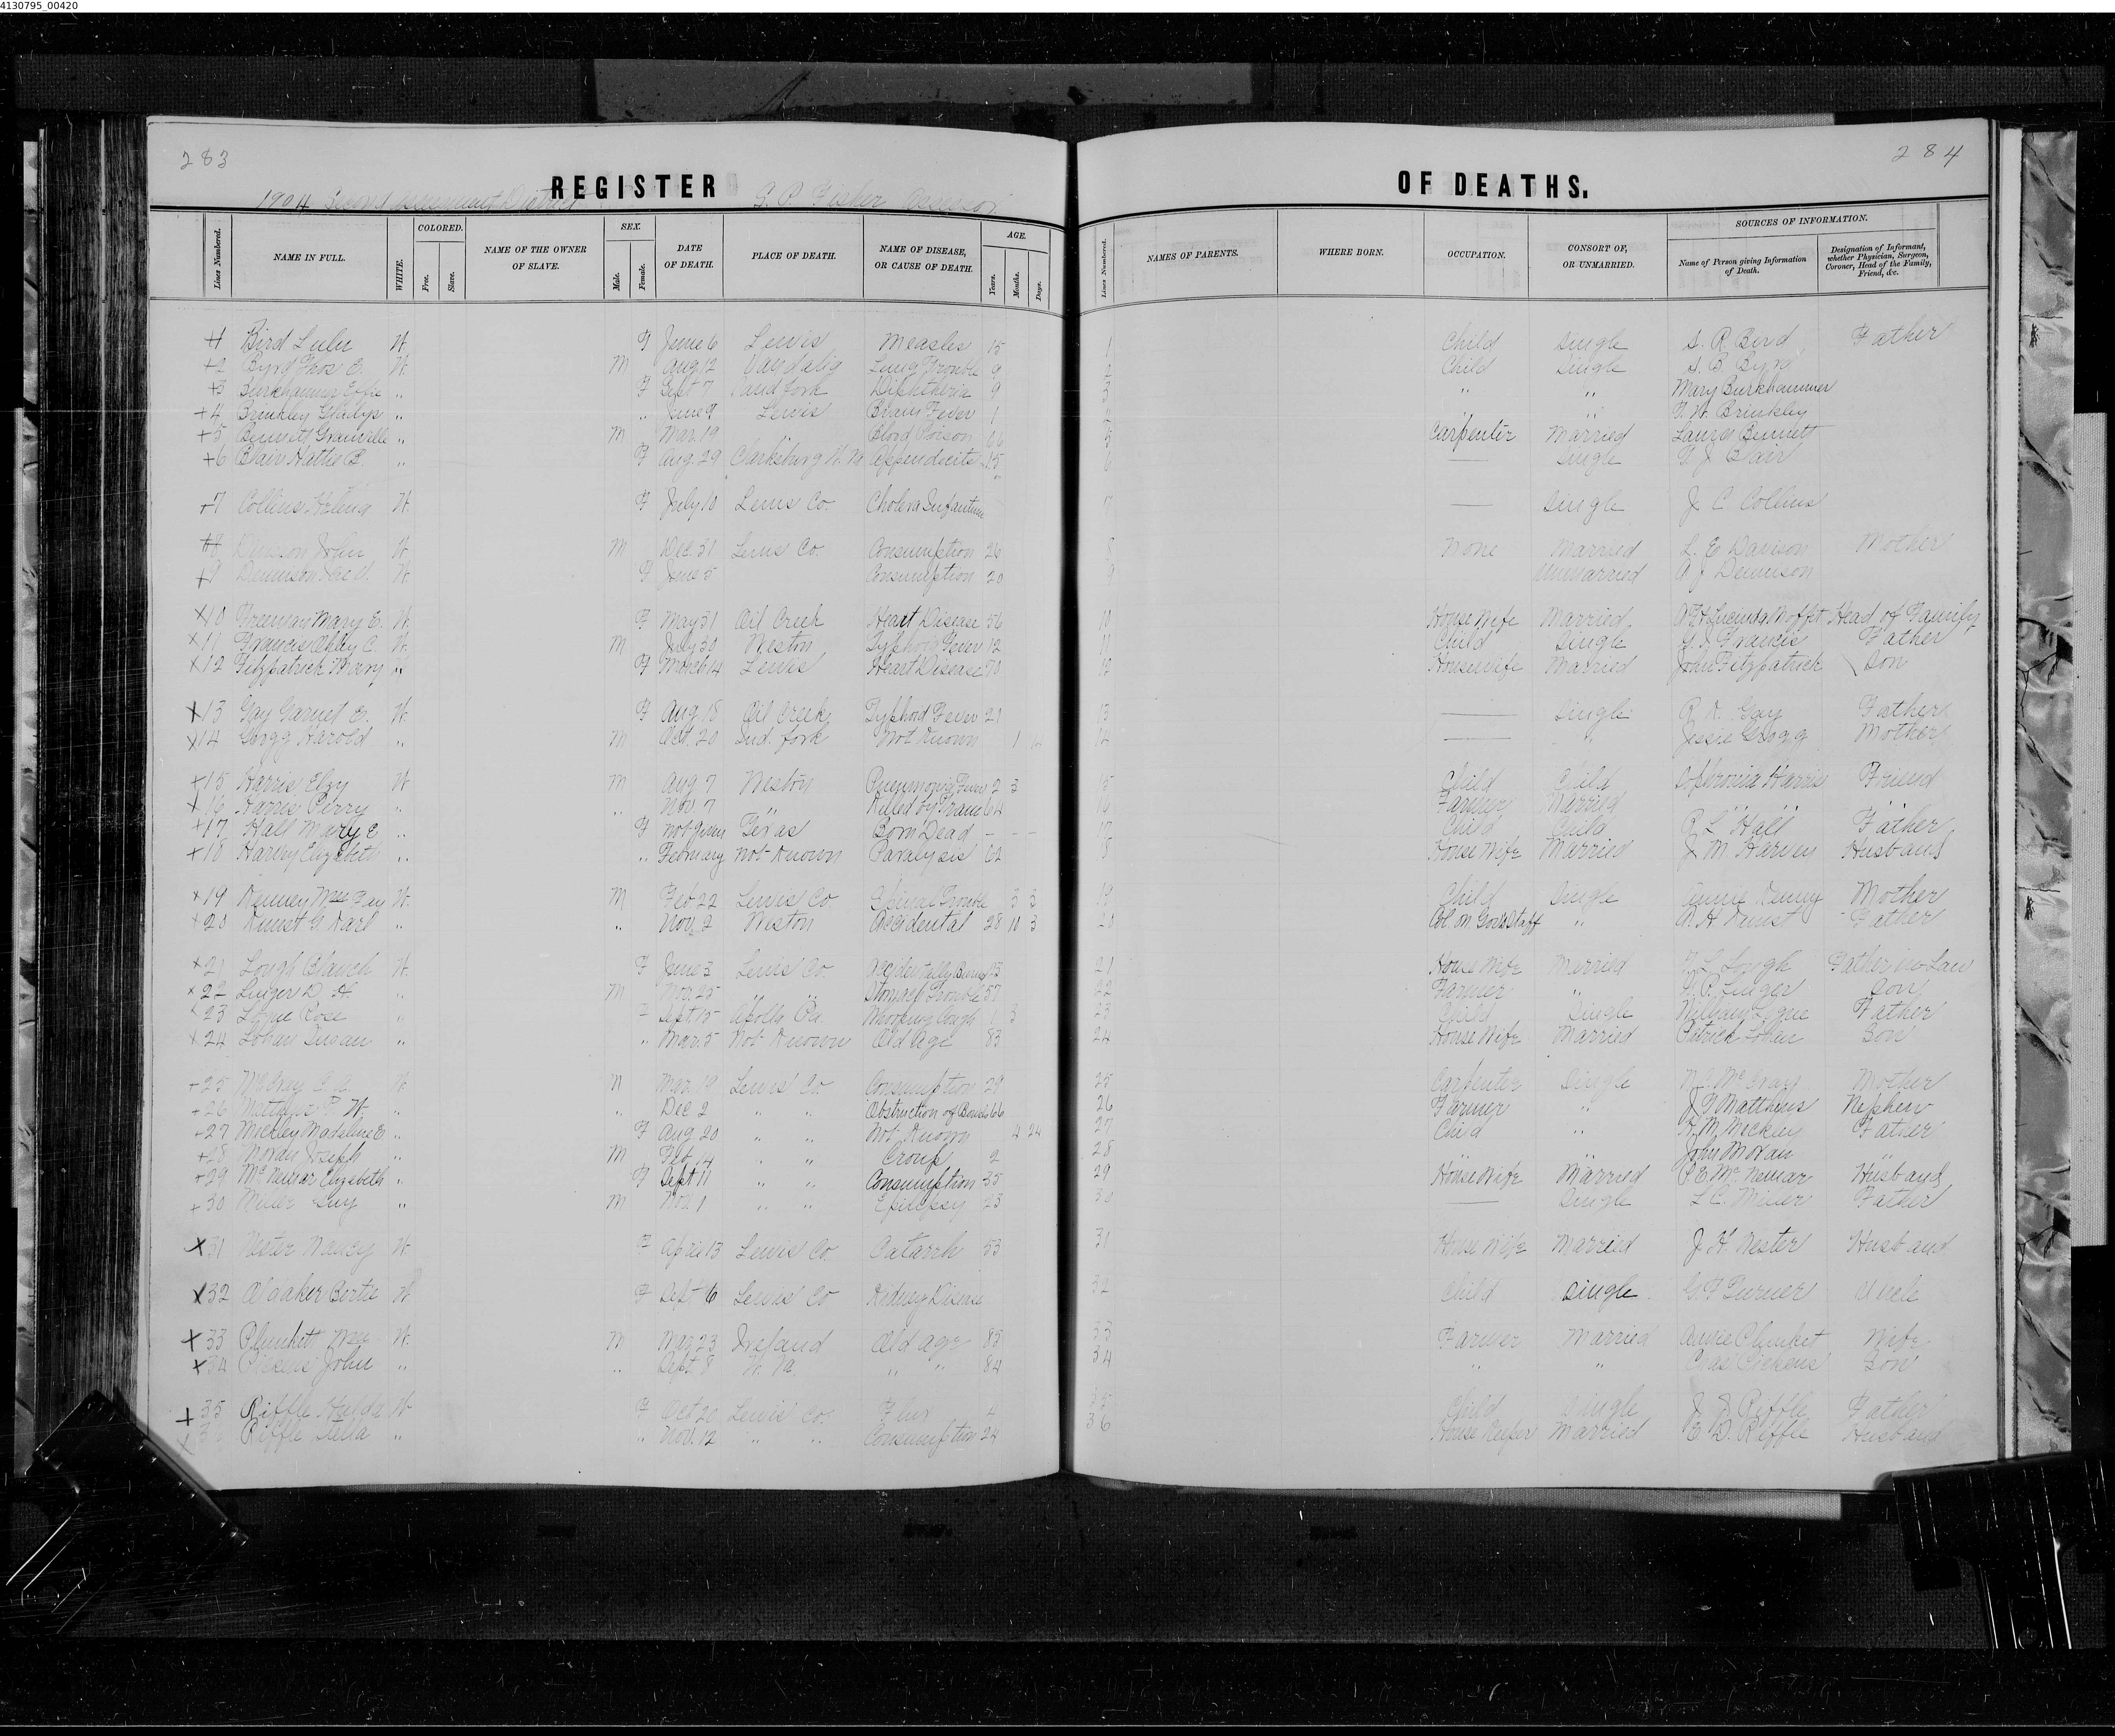 4130795_00420
283
284
REGISTER OF DEATHS.
1904 Second Assessment District G. P. Fisher Assessor
Lines Numbered. NAME IN FULL. WHITE. COLORED. Free. Slave. NAME OF THE OWNER OF SLAVE. SEX. Male. Female. DATE OF DEATH. PLACE OF DEATH. NAME OF DISEASE, OR CAUSE OF DEATH. AGE. Years. Months. Days. Lines Numbered. NAMES OF PARENTS. WHERE BORN. OCCUPATION. CONSORT OF, OR UNMARRIED. SOURCES OF INFORMATION. Name of Person giving Information of Death. Designation of Informant, whether Physician, Surgeon, Coroner, Head of the Family, Friend, &c.
+1 Bird Lulu W. F June 6 Lewis Measles 15 1 Child Single S. R. Bird Father
+2 Byrd Thos E. W. M Aug. 12 Vandalia Lung Trouble 9 2 Child Single
+3 Burkhammer Effie " F Sept 7 Sand fork Diphtheria 9 3 " " Mary Burkhammer
+4 Brinkley Gladys " " June 9 Lewis Brain Fever 1 4 " Brinkley
+5 Bennett Granville " M Mar. 19 " Blood Poison 66 5 Carpenter Married Laura Bennett
+6 Blair Hattie B. " F Aug. 29 Clarksburg W. Va Appendecits 15 6 — Single Blair
+7 Collins Helena W. F July 10 Lewis Co. Cholera Infantum 7 — Single J. C. Collins
+8 Davison John W. M Dec. 31 Lewis Co. Consumption 26 8 None Married L. E. Davison Mother
+9 Dennison W. F June 5 Consumption 20 9 Unmarried A. J. Dennison
X10 Freeman Mary E. W. F May 31 Oil Creek Heart Disease 56 10 House Wife Married. Lucinda Moffit Head of Family
X11 Francis Okley C. W. M July 30 Weston Typhoid Fever 12 11 Child Single Francis Father
X12 Fitzpatrick Mary " F March 14 Lewis Heart Disease 70 12 Housewife Married John Fitzpatrick Son
X13 Gay Garnet E. W. F Aug 18 Oil Creek Typhoid Fever 21 13 — Single Gay Father
X14 Gregg Harold " M Oct. 20 Ind. fork Not Known 1 14 — " Jessie Gregg Mother
+15 Harris Elzy W M Aug 7 Weston Pneumonia Fever 2 3 15 Child Child Sophronia Harris Friend
X16 Harris Perry " " Nov 7 " Killed by Train 64 16 Farmer Married " " "
+17 Hall Mary E " F Not given Texas Born Dead - - - 17 Child Child R. L. Hall Father
+18 Harvey Elizabeth " " February Not Known Paralysis 62 18 House Wife Married J. M. Harvey Husband
X19 Kenney Wm Fay W. M Feb 22 Lewis Co Spinal Trouble 3 3 19 Child Single Annie Kenny Mother
20 Kunst G. Karl " " Nov. 2 Weston Accidental 28 10 3 20 Col. on Gov's Staff " A. H. Kunst Father
X21 Lough Blanch W. F June 3 Lewis Co. Accidentally Burned 21 House Wife Married Lough Father in Law
X22 Linger D. H. " M Nov. 25 " " Stomach Trouble 57 22 Farmer " Linger Son
23 Logue Rose " F Sept. 15 Apollo Pa Whooping Cough 1 3 23 Child Single William Logue Father
24 Lohan Susan " " Mar. 5 Not Known Old Age 83 24 House Wife Married Patrick Lohan Son
+25 McCray W M Mar. 19 Lewis Co. Consumption 29 25 Carpenter Single McCray Mother
+26 Matthews P. W. " " Dec 2 " " Obstruction of Bowels 66 26 Farmer " Matthews Nephew
+27 Mickley Madeline E " F Aug 20 " " Not Known 4 24 27 Child " Mickley Father
+28 Moran Joseph " M Feb 14 " " Croup 2 28 John Moran "
+29 McNemar Elizabeth " F Sept 11 " " Consumption 35 29 House Wife Married P. E. McNemar Husband
+30 Miller Guy " M Nov. 1 " " Epilepsy 23 30 — Single L. C. Miller Father
X31 Nester Nancy W. F April 13 Lewis Co. Catarrh 53 31 House Wife Married J. H. Nester Husband
X32 Bertie W F Sept 6 Lewis Co Kidney Disease 32 Child Single. G. F. Turner Uncle
X33 Plunkett Wm W. M Mar. 23 Ireland Old age 85 33 Farmer Married Annie Plunket Wife
X34 Pickens John " " Sept. 8 W. Va. " " 84 34 " " Chas Pickens Son
+35 Riffle Hulda W F Oct 20 Lewis Co. Flux 4 35 Child Single Riffle Father
+36 Riffle " " Nov. 12 " " Consumption 24 36 House Keeper Married E. D. Riffle Husband